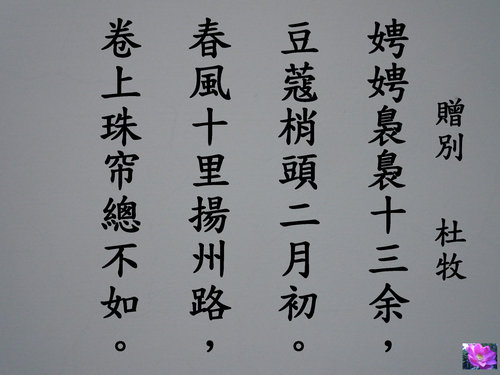 贈別 杜牧
娉娉裊裊十三余，
豆蔻梢頭二月初。
春風十里揚州路，
卷上珠帘總不如。